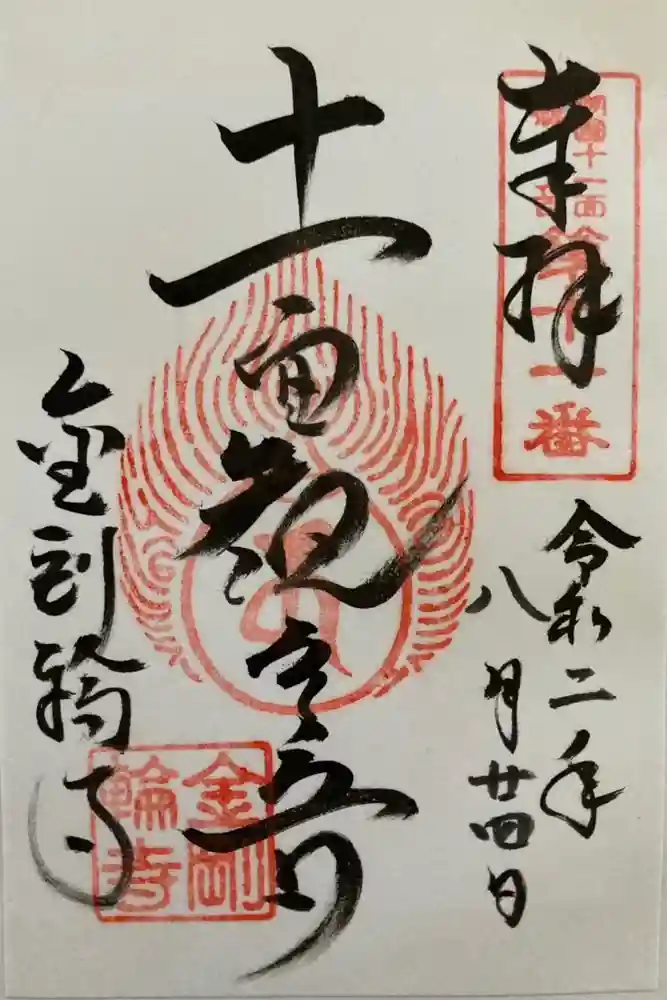 奉拝
湖國十一面
第十一番
令和二年
八月廿四日
十一面観世音
金剛輪寺
金剛
輪寺